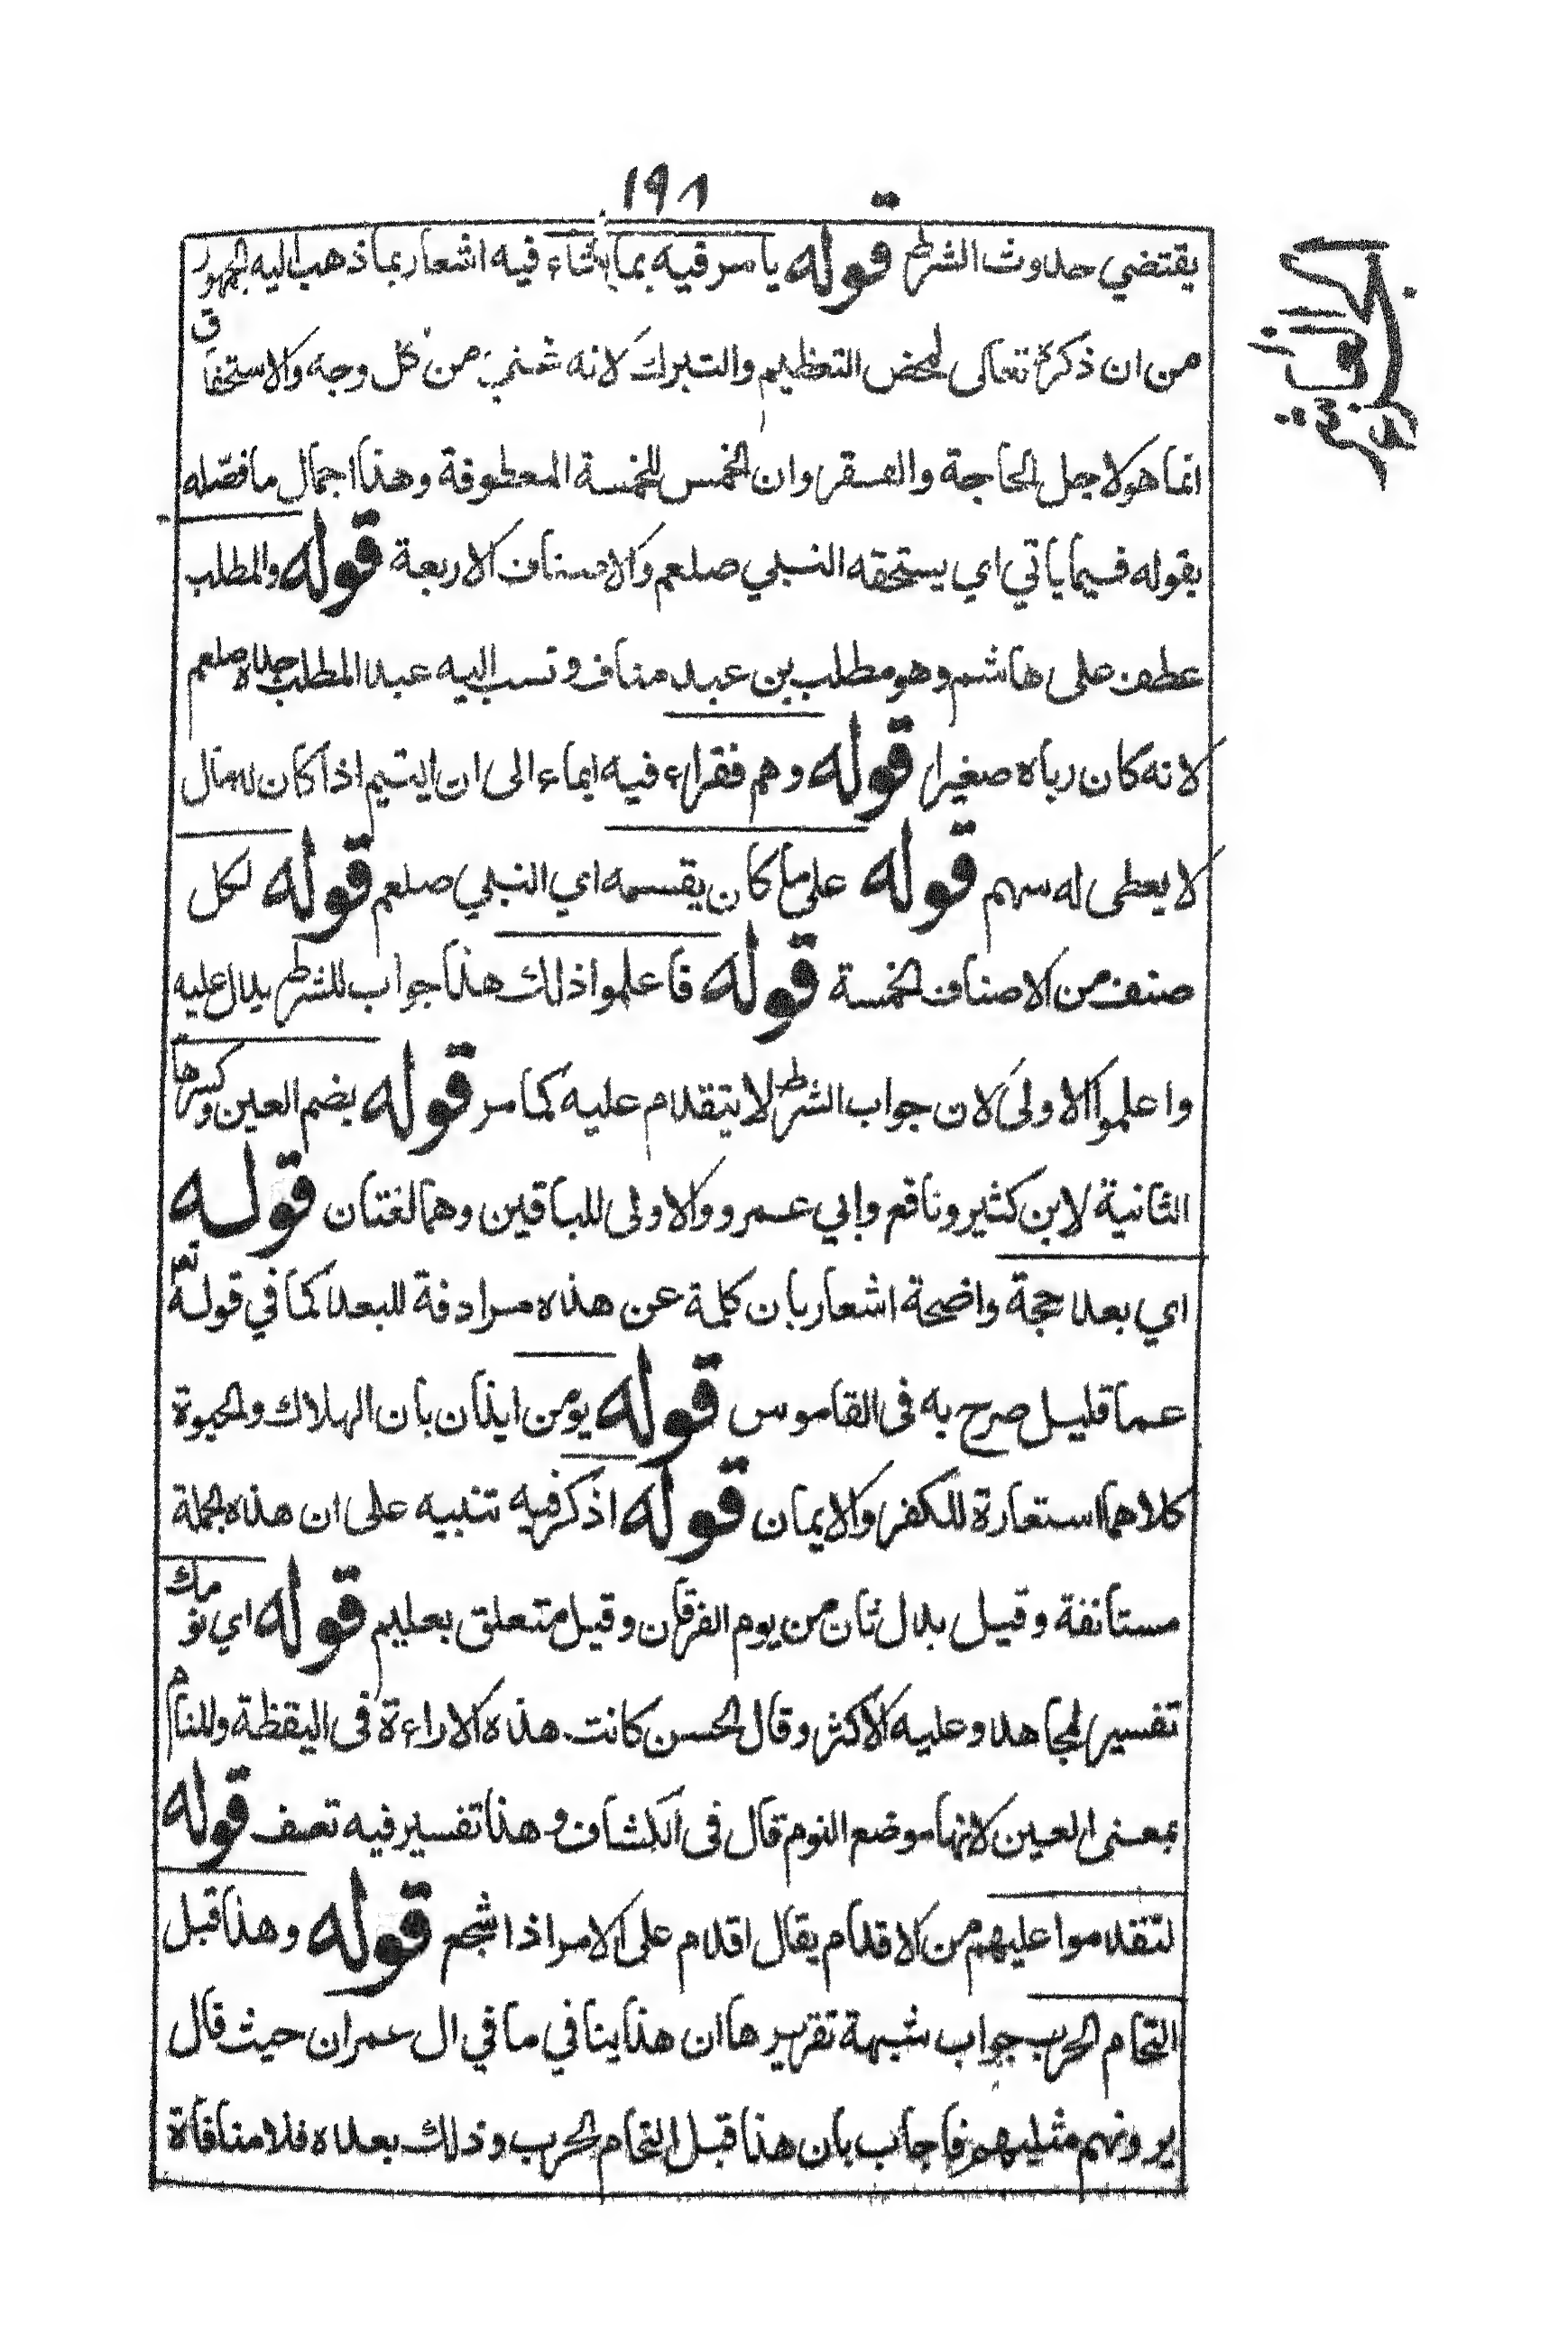 ١٩٨
يقتضي حدوث الشرط قوله يامر فيه بما يشاء فيه اشعار بما ذهب اليه الجمهور
من ان ذكره تعالى لمحض التعظيم والتبرك لانه غني من كل وجه والاستحقاق
انما هو لاجل الحاجة والفقر وان الخمس للخمسة المعطوفة وهذا اجمال ما فصّله
بقوله فيما ياتي اي يستحقه النبي صلعم والاصناف الاربعة قوله والمطلب
عطف على هاشم وهو مطلب بن عبد مناف ونسب اليه عبد المطلب جده صلعم
لانه كان رباه صغيرا قوله وهم فقراء فيه ايماء الى ان اليتيم اذا كان له مال
لا يعطى له سهم قوله على ما كان يقسمه اي النبي صلعم قوله لكل
صنف من الاصناف الخمسة قوله فاعلموا ذلك هذا جواب للشرط يدل عليه
واعلموا الاولى لان جواب الشرط لا يتقدم عليه كما مر قوله بضم العين وكسرها
الثانية لابن كثير ونافع وابي عمرو والاولى للباقين وهما لغتان قوله
اي بعد حجة واضحة اشعار بان كلمة عن هذه مرادفة للبعد كما في قوله تعم
عما قليل صرح به فى القاموس قوله يومن ايذان بان الهلاك والحيوة
كلاهما استعارة للكفر والايمان قوله اذكر فيه تنبيه على ان هذه الجملة
مستانفة وقيل بدل ثان من يوم الفرقان وقيل متعلق بعليم قوله اي نومك
تفسير لمجاهد وعليه الاكثر وقال الحسن كانت هذه الاراءة فى اليقظة والمنام
بمعنى العين لانها موضع النوم قال فى الكشاف وهذا تفسير فيه تعسف قوله
لتقدموا عليهم من الاقدام يقال اقدم على الامر اذا شجع قوله وهذا قبل
التحام الحرب جواب شبهة تقريرها ان هذا ينافي ما في ال عمران حيث قال
يرونهم مثليهم فاجاب بان هذا قبل التحام الحرب وذلك بعده فلا منافاة